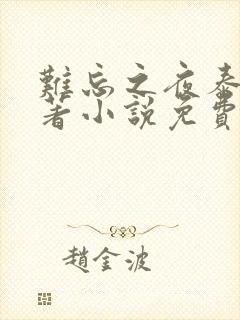 難忘之夜泰
著小說免費
趙金波